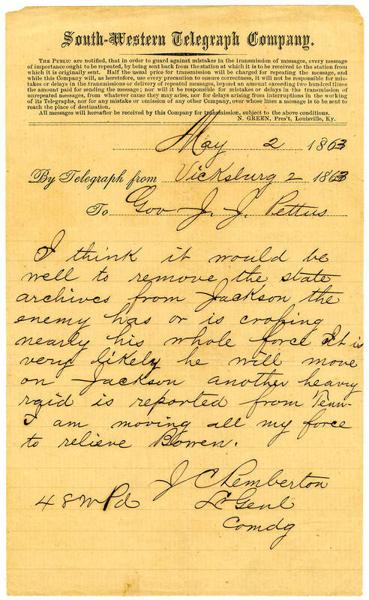 South-Western Telegraph Company.
THE PUBLIC are notified, that in order to guard against mistakes in the transmission of messages, every message
of importance ought to be repeated, by being sent back from the station at which it is to be received to the station from
which it is originally sent. Half the usual price for transmission will be charged for repeating the message, and
while this Company will, as heretofore, use every precaution to ensure correctness, it will not be responsible for mis-
takes or delays in the transmission or delivery of repeated messages, beyond an amount exceeding two hundred times
the amount paid for sending the message; nor will it be responsible for mistakes or delays in the transmission of
unrepeated messages, from whatever cause they may arise, nor for delays arising from interruptions in the working
of its Telegraphs, nor for any mistake or omission of any other Company, over whose lines a message is to be sent to
reach the place of destination.
All messages will hereafter be received by this Company for transmission, subject to the above conditions.
N. GREEN, Pres't, Louisville, Ky.
May 2 1863
By Telegraph from Vicksburg 2 1863
To Gov J. J. Pettus
I think it would be
well to remove the state
archives from Jackson the
enemy has or is crossing
nearly his whole force It is
very likely he will move
on Jackson another heavy
raid is reported from Tenn-
I am moving all my force
to relieve Bowen.
J C Pemberton
Lt Genl
48 W Pd Comdg